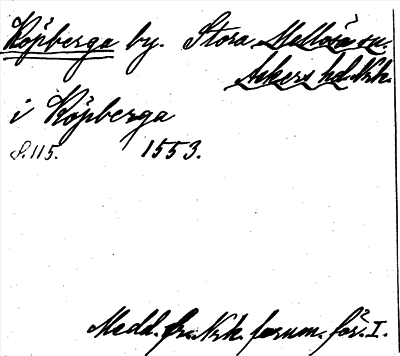 Köpberga by. Stora Mellösa sn.
Askers hd. Nrk.
i Köpberga
s. 115. 1553.
Medd. fr. Nrk. fornm. för. I.